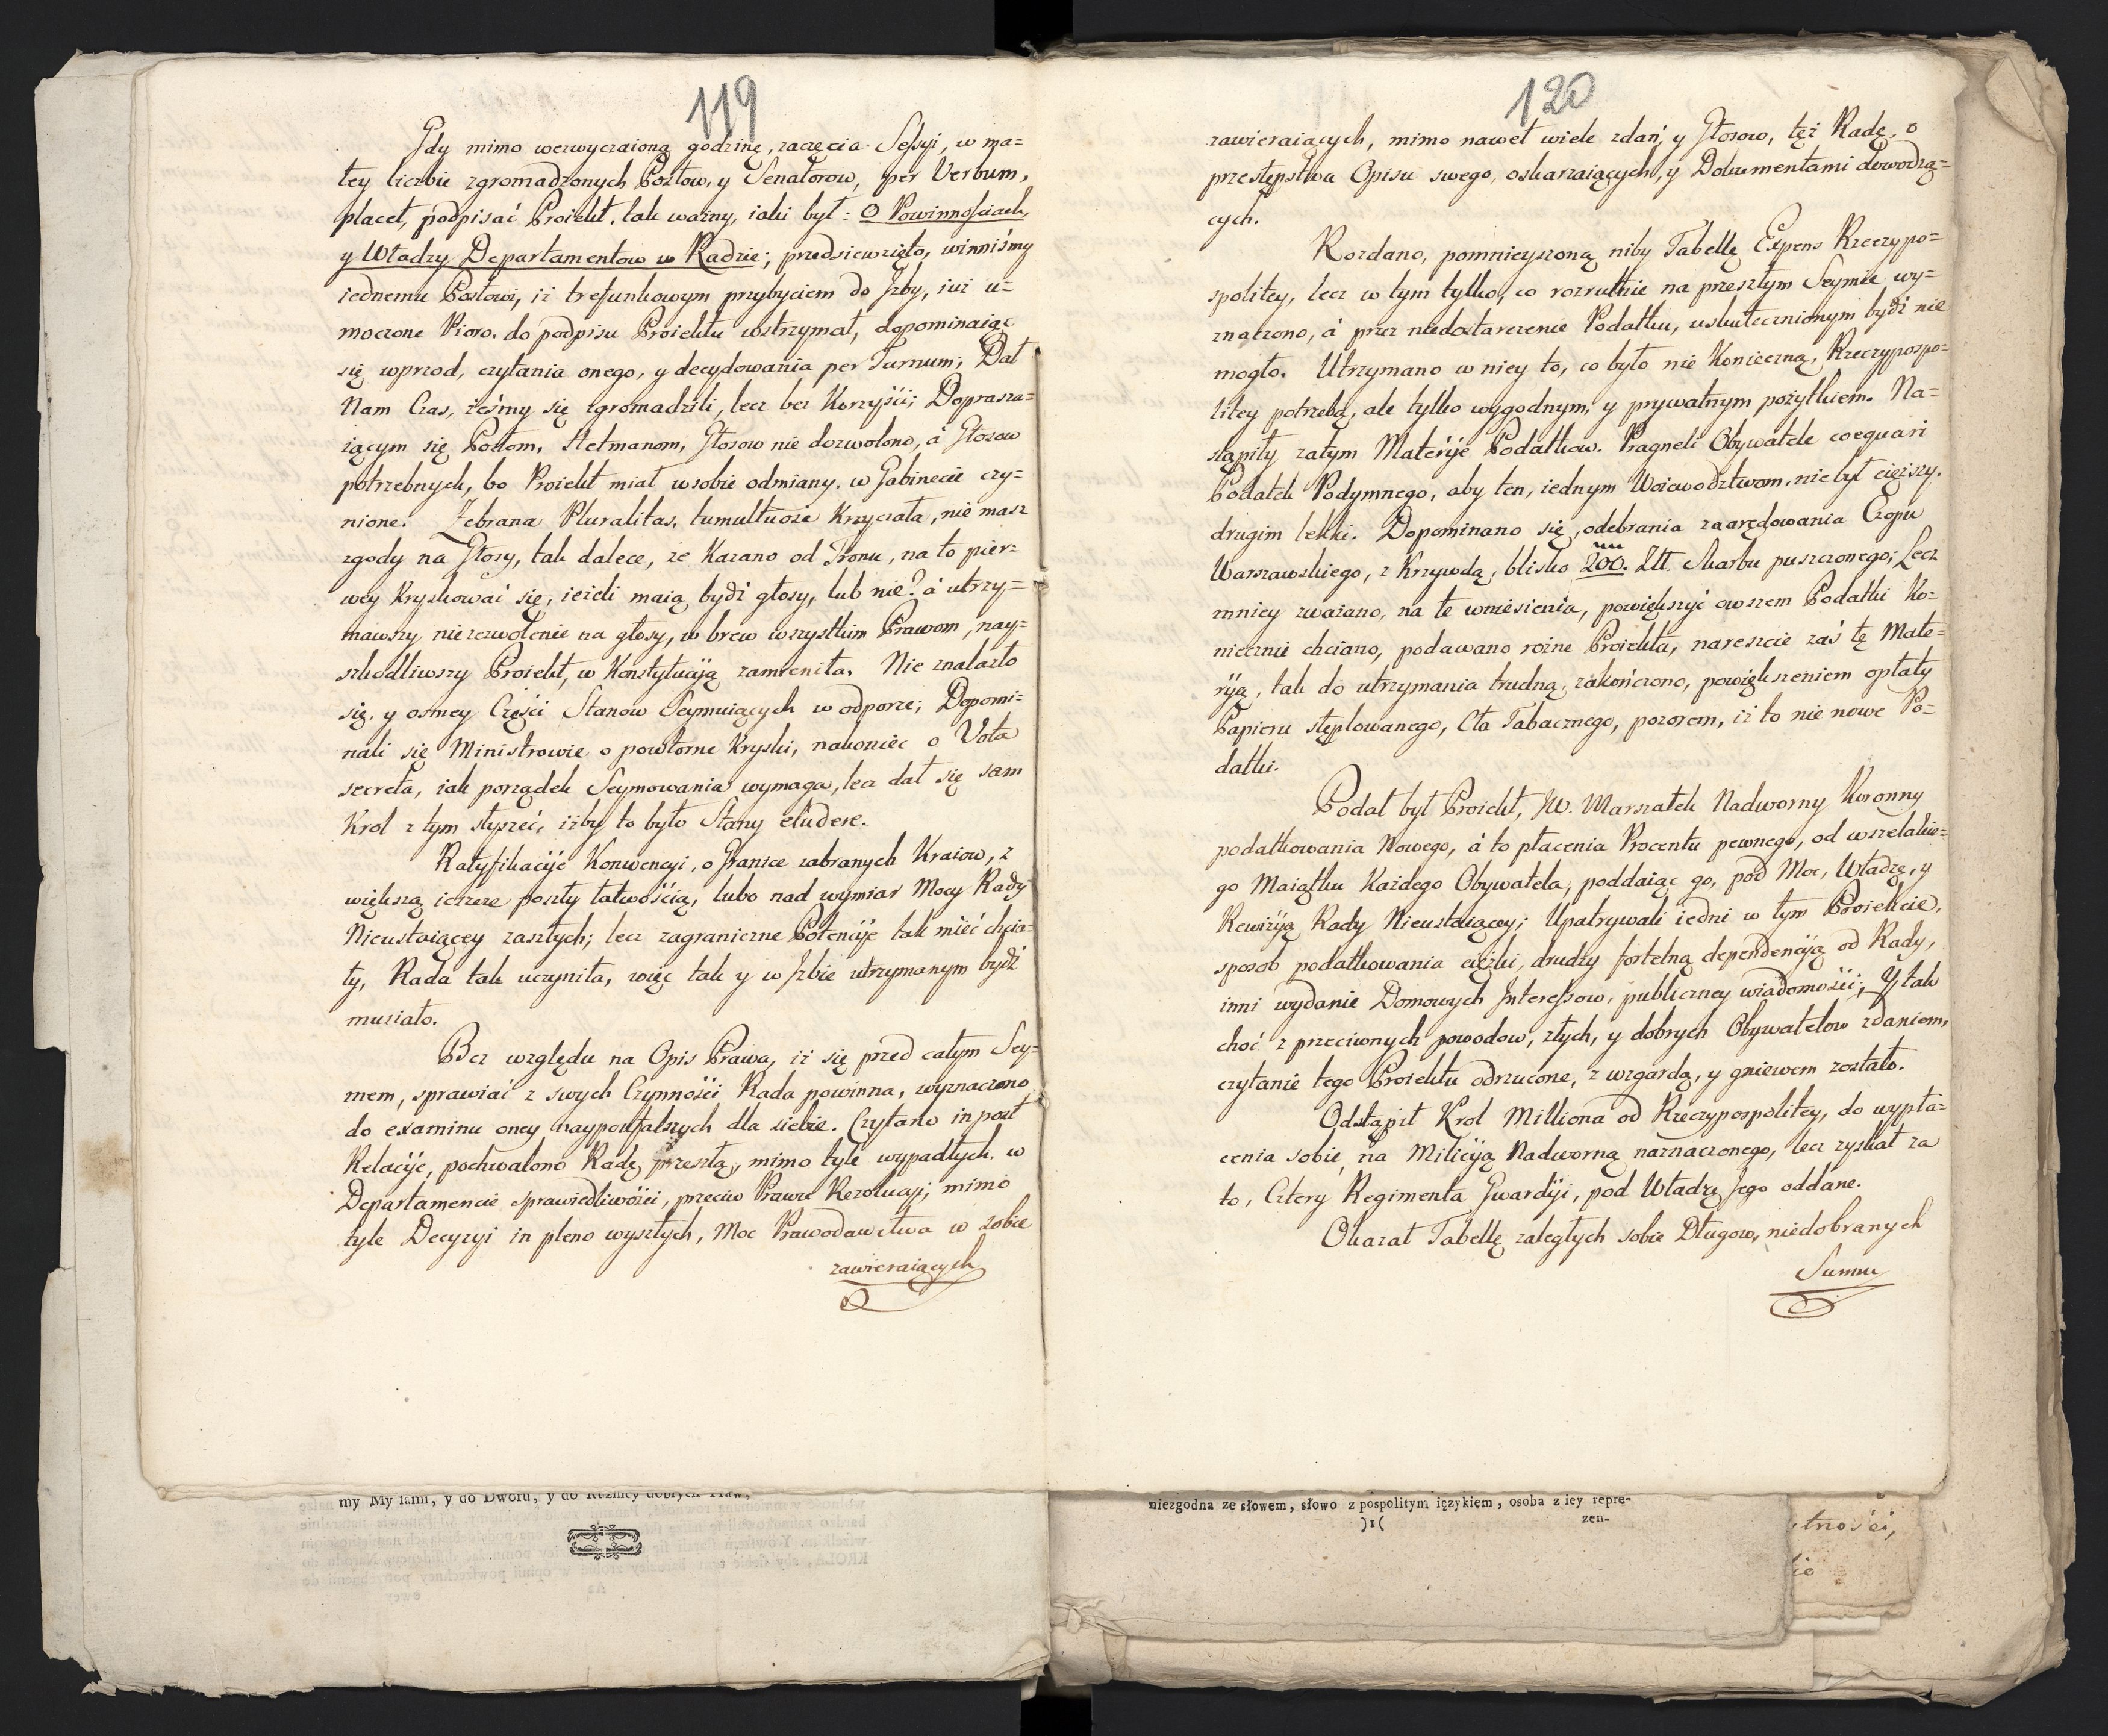 119
Gdy mimo wezwyczaioną godzinę, zaczęcia Sessyi, w ma=
łey liczbie zgromadzonych Posłow, y Senatorow, per Verbum,
placet, podpisać Proiekt, tak ważny, iaki był: O Powinnościach,
y Władzy Departamentow w Radzie; przedsiewzięto, winniśmy
iednemu Posłowi, iż trefunkowym przybyciem do Jzby, iuż u=
moczone Pioro, do podpisu Proiektu wstrzymał, dopominaiąc
się wprzod, czytania onego, y decydowania per Turnum; Dał
Nam Czas, żeśmy się zgromadzili, lecz bez Korzyści; Doprasza=
iącym się Posłom, Hetmanom, Głosow nie dozwolono, á Głosow
potrzebnych, bo Proiekt miał w sobie odmiany, w Gabinecie czy=
nione. Zebrana Pluralitas, tumultuose Krzyczała, nie masz
zgody na Głosy, tak dalece, że Kazano od Tronu, na to pier=
wey Kryskować się, ieżeli maią bydź głosy, lub nie? á utrzy=
mawszy niezezwolenie na głosy, w brew wszystkim Prawom, nay=
szkodliwszy Proiekt, w Konstytucyią zamieniła. Nie znalazło
się, y osmey Części Stanow Seymuiących w odporze; Dopomi=
nali się Ministrowie o powtorne Kryski, nakoniec o Vota
secreta, iak porządek Seymowania wymaga, lecz dał się sam
Krol z tym słyszeć, iżby to było Stany eludere.
Ratyfikacyie Konwencyi, o Granice zabranych Kraiow, z
większą ieszcze poszły łatwością, lubo nad wymiar Mocy Rady
Nieustaiącey zaszłych; lecz zagraniczne Potencyie tak mieć chcia=
ły, Rada tak uczyniła, więc tak y w Jzbie utrzymanym bydź
musiało.
Bez względu na Opis Prawa, iż się przed całym Sey=
mem, sprawiać z swych Czynności Rada powinna, wyznaczono
do examinu oney naypoufalszych dla siebie. Czytano in post
Relacyie, pochwalono Radę przeszłą, mimo tyle wypadłych, w
Departamencie sprawiedliwości, przeciw Prawu Rezolucyi; mimo
tyle Decyzyi in pleno wyszłych, Moc Prawodawctwa w sobie
zawieraiących
my My sami, y do Dworu, y do
120
zawieraiących, mimo nawet wiele zdań, y Głosow, tęż Radę, o
przestępstwa Opisu swego, oskarzaiących, y Dokumentami dowodzą=
cych.
Rozdano, pomnieyszoną niby Tabellę Expens Rzeczypo=
spolitey, lecz w tym tylko, co rozrutnie na przeszłym Seymie wy=
znaczono, á przez niedostarczenie Podatku, uskutecznionym bydź nie
mogło. Utrzymano w niey to, co było nie Konieczną, Rzeczypospo=
litey potrzebą, ale tylko wygodnym, y prywatnym pożytkiem. Na=
stąpiły zatym Materyie Podatkow. Pragneli Obywatele coequari
Podatek Podymnego, aby ten, iednym Woiewodztwom, nie był cięższy,
drugim lekki. Dopominano się, odebrania zaarędowania Czopu
Warszawskiego, z Krzywdą, blisko 200. Złł. Skarbu puszczonego; Lecz
mniey zważano, na te wniesienia, powiększyć owszem Podatki Ko=
niecznie chciano, podawano rożne Proiekta, nareszcie zaś tę Mate=
ryią, tak do utrzymania trudną, zakończono, powiększeniem opłaty
Papieru stęplowanego, Cła Tabacznego, pozorem, iż to nie nowe Po=
datki.
Podał był Proiekt, JW. Marszałek Nadworny Koronny
podatkowania Nowego, á to płacenia Procentu pewnego, od wszelakie=
go Maiątku Każdego Obywatela, poddaiąc go, pod Moc, Władzę, y
Rewizyią Rady Nieustaiącey; Upatrywali iedni w tym Proiekcie,
sposob podatkowania ciężki, drudzy fortelną dependencyią od Rady,
inni wydanie Domowych Jnteressow, publiczney wiadomości; Y tak
choć z przeciwnych powodow, złych, y dobrych Obywatelow zdaniem,
czytanie tego Proiektu odrzucone, z wzgardą, y gniewem zostało.
Odstąpił Krol Milliona od Rzeczypospolitey, do wypła=
cenia sobie, na Milicyią Nadworną naznaczonego, lecz zyskał za
to, Cztery Regimenta Gwardyi, pod Władzę Jego oddane.
Okazał Tabellę zaległych sobie Długow, niedobranych
Summ
niezgodna ze słowem, słowo z pospolitym ięzykiem, osoba z iey repre-
)1(
zen-